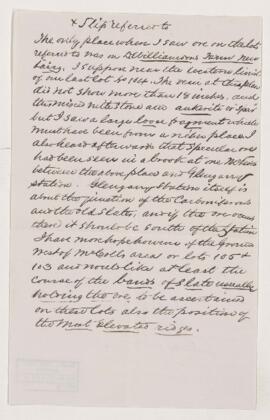 * Slip referred to
The only place where I saw ore on the lot
referred to was on Williamsons Farm near
Laing. I suppose near the western limit
of our last lot No 114. The ore at this place
did not show more than 18 inches, and
this mixed with stone and ankerite or spar
but I saw a large loose fragment which
must have been from a richer place. I
also heard afterwards that Specular ore
had been seen in a brook at one
between the above place and Glengarry
Station. Glengarry Station itself is
about the junction of the Carboniferous
and the old Slates, and if the ore occurs
there it should be South of the Station
I have more hope however of the ground
West of McColls area or lots 105 &
103 and would like at least the
course of the bands of Slate usually
holding the ore, to be ascertained
on these lots also the position of
the Most Elevated ridges.